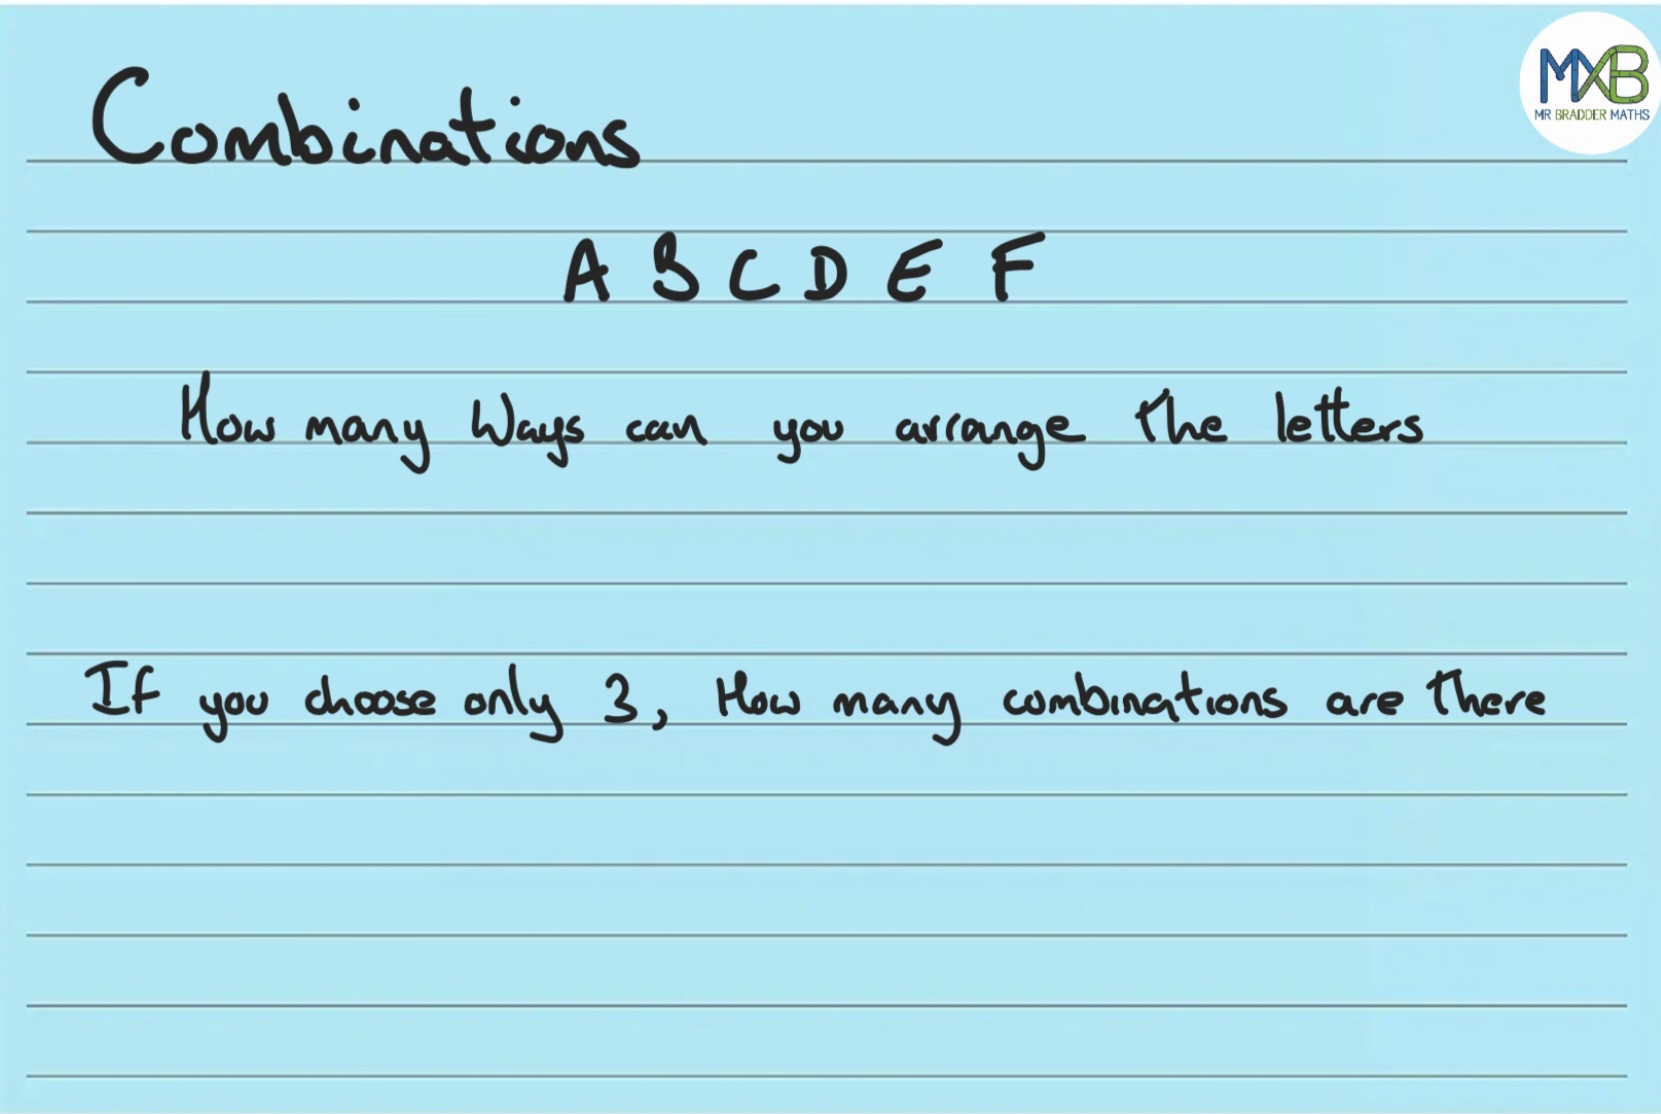 Combinations
MXB
MR BRADDER MATHS
A B C D E F
How many Ways can you arrange the letters
If you choose only 3, How many combinations are there